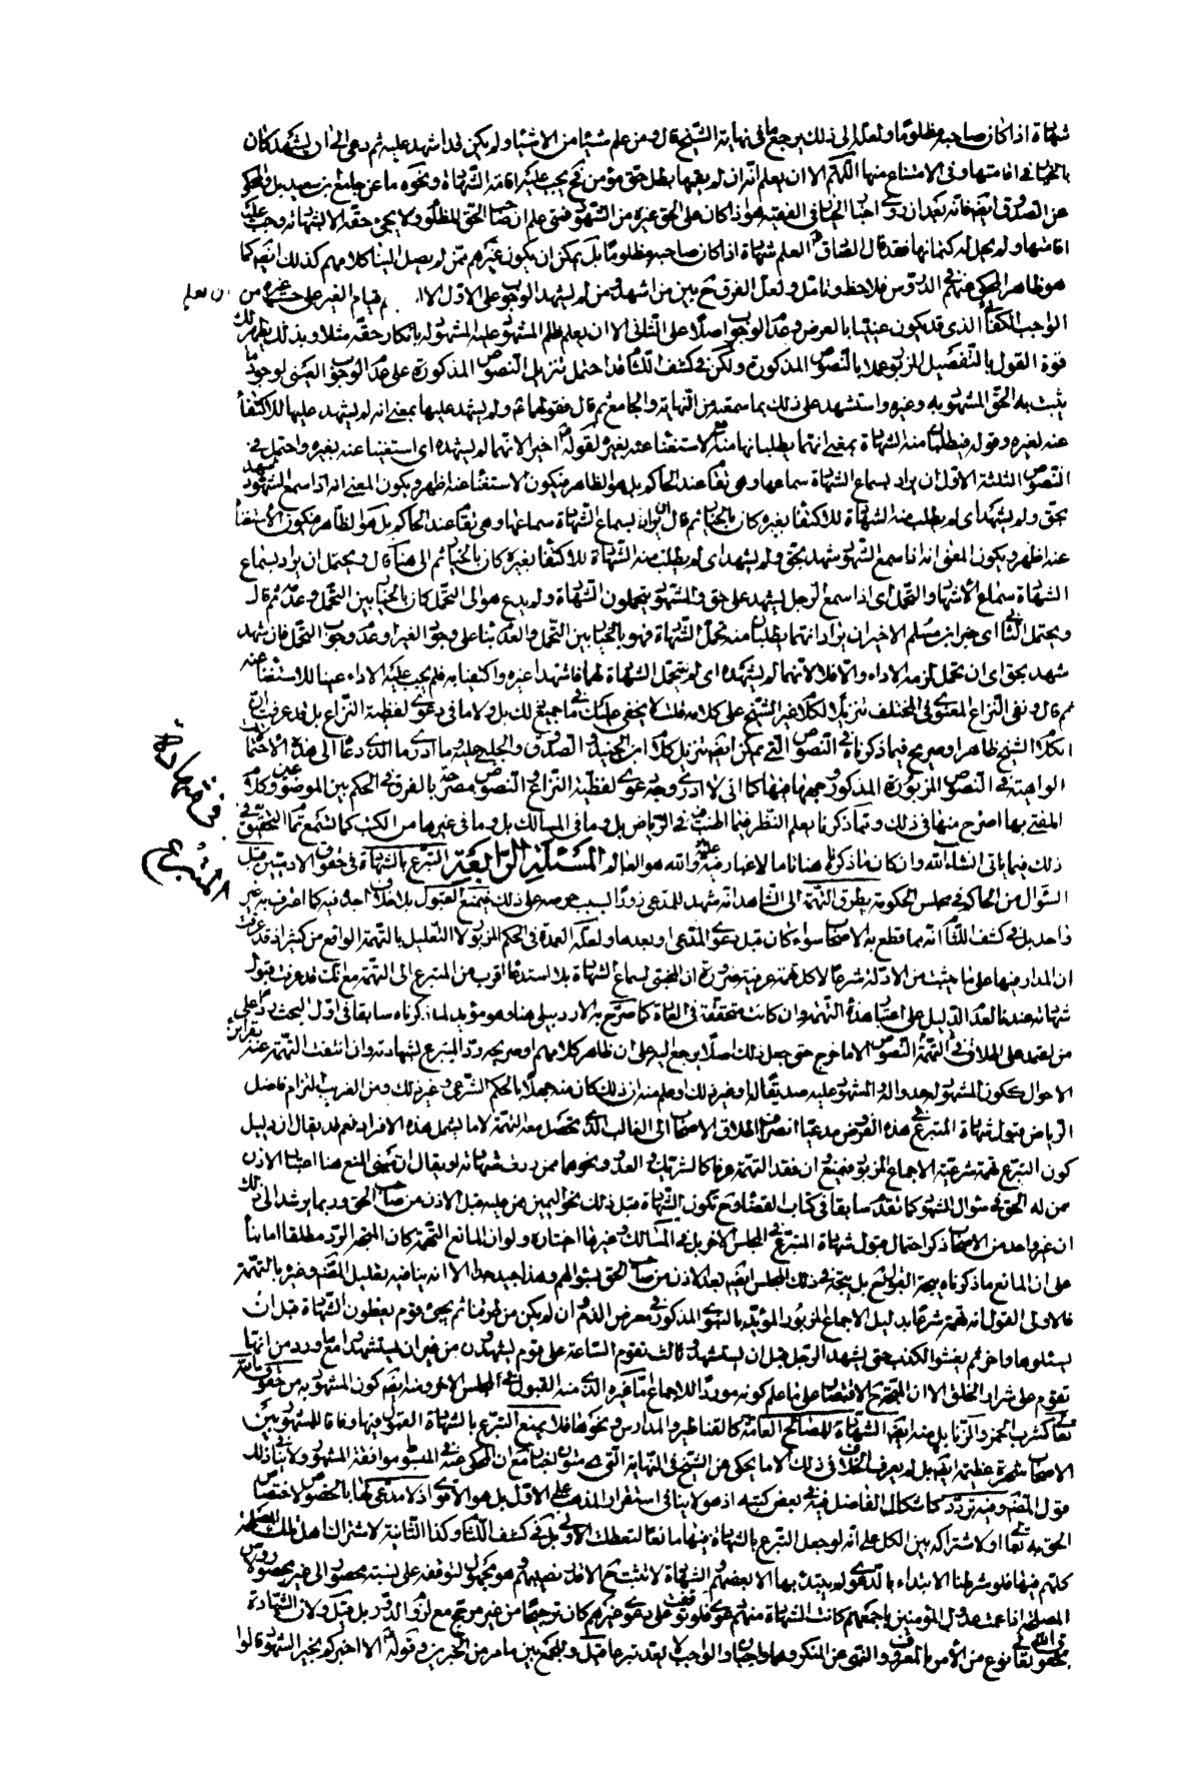 شهادة اذا كان صاحبه مظلوما ولعله الى ذلك يرجع ما فى نهاية الشيخ قال ومن علم شيئا من الاشياء ولم يكن قد اشهد عليه ثم دعى الى ان يشهد كان
بالخيار فى اقامتها وفى الامتناع منها اللهم الا ان يعلم انه ان لم يقمها بطل حق مؤمن فح يجب عليه اقامة الشهادة ونحوه ما عن جامع بن سعيد بل والمحكى
عن الصدوق ايضا فانه بعد ان روى اخبار الخيار فى الفقيه هو اذا كان على الحق غيره من الشهود فمتى علم ان صاحب الحق المظلوم ولا يحيى حقه الا بشهادته وجب عليه
اقامتها ولم يحل له كتمانها فقد قال الصادق العلم شهادة اذا كان صاحبه مظلوما بل يمكن ان يكون غيرهم ممن لم يصل الينا كلامهم كذلك ايضا كما
هو ظاهر المحكى عنهم فى الدروس فلاحظ وتامل ولعل الفرق ح بين من اشهد ومن لم يشهد الوجوب على الاول الا قيام الغير على حسب غيره من
الواجب الكفائى الذى قد يكون عينيا بالعرض وعدم الوجوب اصلا على الثانى الا ان يعلم ظلم المشهود عليه المشهود له بانكار حقه مثلا وبذلك يظهر لك
قوة القول بالتفصيل المزبور عملا بالنصوص المذكورة ولكن فى كشف اللثام قد احتمل تنزيل النصوص المذكورة على عدم الوجوب العينى لوجود ما
يثبت به الحق المشهود به وغيره واستشهد على ذلك بما سمعته من النهاية والجامع ثم قال فقولهما ولم يشهد عليها بمعنى انه لم يشهد عليها للاكتفاء
عنه لغيره وقوله فيطلبان منه الشهادة بمعنى انهما يطلبانها منه مع الاستغناء عنه بغيره لقوله اخيرا لانهما لم يشهداه اى استغنيا عنه بغيره واحتمل فى
النصوص الثلثة الاول ان يراد بسماع الشهادة سماعها وهى تقام عند الحاكم بل هو الظاهر فيكون الاستغناء عنه اظهر ويكون المعنى انه اذا سمع الشهود
بحق ولم يشهد اى لم يطلب منه الشهادة للاكتفاء بغيره كان بالخيار ثم قال ان يراد بسماع الشهادة سماعها وهى تقام عند الحاكم بل هو الظاهر فيكون الاستغناء
عنه اظهر ويكون المعنى انه اذا سمع الشهود شهد بحق ولم يشهد اى لم يطلب منه الشهادة للاكتفاء بغيره كان بالخيار ثم الى هنا قال ويحتمل ان يراد بسماع
الشهادة سماع الاشهاد والتحمل اى اذا سمع الرجل يشهد على حق والشهود يتحملون الشهادة ولم يدع هو الى التحمل كان بالخيار بين التحمل وعدمه ثم قال
ويحتمل الثانى اى خبر ابن مسلم الاخير ان يراد انهما يطلبان منه تحمل الشهادة فهو بالخيار بين التحمل والعدم بناء على وجود الغير او عدم وجوب التحمل فان شهد
شهد بحق اى ان تحمل لزمه الاداء والا فلا لانهما لم يشهداه اى لم يتحمل الشهادة لهما فاشهدا غيره واكتفيا به فلم يجب عليه الاداء عينا للاستغناء عنه
ثم قال ونفى النزاع المعنوى فى المختلف تنزيلا لكلام غير الشيخ على كلامه قلت لا يخفى عليك ما فى جميع ذلك بل ولا ما فى دعوى لفظية النزاع بل قد عرفت ان
كلام الشيخ ظاهر او صريح فيما ذكرناه فى النصوص التى يمكن ايضا تنزيل كلام ابن الجنيد والصدوق والحلبى عليه ما ادرى ما الذى دعاه الى هذه الاحتمالات
الواهية فى النصوص المزبورة المذكور جميعها منها كما انى لا ادرى وجه دعوى لفظية النزاع والنصوص مصرحة بالفرق فى الحكم بين الموضوعين وكلام
المفتى بها اصرح منها فى ذلك ومما ذكرنا يعلم النظر فيما اطنب فى الرياض بل وما فى المسالك بل وما فى غيرها من الكتب كما تسمع تمام التحقيق فى
ذلك فيما ياتى انشاء الله وان كان ما ذكرناه هنا تاما لا غبار عليه والله هو العالم المسئلة الرابعة التبرع بالشهادة فى حقوق الادميين قبل
السؤال من الحاكم فى مجلس الحكومة يطرق التهمة الى الشاهد انه شهد للمدعى زورا لسبب حرصه على ذلك فيمنع القبول بلا خلاف اجده فيه كما اعترف به غير
واحد بل فى كشف اللثام انه مما قطع به الاصحاب سواء كان قبل دعوى المدعى او بعدها ولعله العمدة فى الحكم المزبور لا التعليل بالتهمة الواقع من كثير اذ قد عرفت
ان المدار منها على ما حيثت من الادلة شرعا لا كل تهمة عرفية ضرورة ان المجتبى لسماع الشهادة بلا استدعاء اقرب من المتبرع الى التهمة مع انك قد عرفت قبول
شهادته عندنا لعدم الدليل على اعتبار هذه التهمة وان كانت متحققة فى العادة كما صرح به الاردبيلى هنا وهو مؤيد لما ذكرناه سابقا فى اول البحث ردا على
من يعتمد على اطلاق التهمة فى النصوص الا ما خرج حتى جعل ذلك اصلا يرجع اليه على ان ظاهر كلامهم او صريحه رد المتبرع لشهادته وان انتفت التهمة عنه بقرائن
الاحوال ككون المشهود له عدوا له والمشهود عليه صديقا له او غير ذلك او علم منه ان ذلك كان منه جهلا بالحكم الشرعى وغير ذلك ومن الغريب التزام فاضل
الرياض قبول شهادة المتبرع فى هذه الفروض مدعيا انصراف اطلاق الاصحاب الى الغالب الذى تحصل معه التهمة لا ما يشمل هذه الافراد نعم قد يقال ان دليل
كون التبرع تهمة شرعية الاجماع المزبور فيمنع وان فقد التهمة عرفا كالشريك والعدو ونحوهما ممن ردت شهادته او يقال ان مبنى المنع هنا اعتبار الاذن
من له الحق فى سؤال الشهود كما تقدم سابقا فى كتاب القضاء وح تكون الشهادة قبل ذلك نحو اليمين من عليه قبل الاذن من صاحب الحق وربما يرشد الى ذلك
ان غير واحد من الاصحاب ذكر احتمال قبول شهادة المتبرع فى المجلس الاخر بل فى المسالك وغيرها اختاره ولو ان المانع التهمة كان المتجه الرد مطلقا اما بناء
على ان المانع ما ذكرناه يتجه القبول ح بل يتجه فى ذلك المجلس ايضا بعد الاذن من صاحب الحق بسؤالهم وهذا جيد جدا الا انه ينافيه تعليل المصنف وغيره بالتهمة
فالاولى القول انه تهمة شرعا بدليل الاجماع المزبور المؤيد بالنبوى المذكور فى معرض الذم ان لم يكن من طرقنا ثم يجئ قوم يعطون الشهادة قبل ان
يسئلوها واخر ثم يفشو الكذب حتى يشهد الرجل قبل ان يستشهد وثالث تقوم الساعة على قوم يشهدون من غير ان يستشهدوا مع ما ورد من انها
تقوم على شرار الخلق الا ان المتجه ح الاقتصار على ما علم كونه موردا للاجماع اما غيره الذى منه القبول فى المجلس الاخر ومنه ايضا كون المشهود به من حقوق الله
تعالى كشرب الخمر والزنا بل منه ايضا الشهادة للمصالح العامة كالقناطر والمدارس ونحوها فلا يمنع التبرع بالشهادة القبول فيها وفاقا للمشهور بين
الاصحاب شهرة عظيمة ايضا بل لم يعرف الخلاف فى ذلك الا ما يحكى عن الشيخ فى النهاية التى هى متون اخبار مع ان المحكى عنه فى المبسوط موافقة المشهور ولا ينافى ذلك
قول المصنف وفيه تردد كاشكال الفاضل فيه فى بعض كتبه اذ هو لا ينافى استقرار المذهب على الاول بل هو الاقوى اذ لا مدعى لها بالخصوص لاختصاص
الحق به تعالى او لاشتراكه بين الكل على انه لو جعل التبرع بالشهادة فيها مانعا لتعطلت الاولى بل فى كشف اللثام وكذا الثانية لاشتراك اهل تلك المصلحة
كلهم فيها فلو شرطنا الابتداء بالدعوى لم يبتدء بها الا بعضهم والشهادة لا تثبت ح الا قدر نصيبهم وهو مجهول لتوقفه على نسبة محصور الى غير محصور ولان
المصلحة اذا عمت عدول المؤمنين باجمعهم كانت الشهادة منهم دعوى فلو توقفت على دعوى غيرهم كان ترجيحا من غير مرجح مع لزوم الدور بل قيل ولان الشهادة
بحقوق الله تعالى نوع من الامر بالمعروف والنهى عن المنكر وهما واجبان والواجب لا يعد تبرعا قيل وللجمع بين ما مر من الخبرين وقوله الا اخبركم بخير الشهود قالوا
فى شهادة
المتبرع